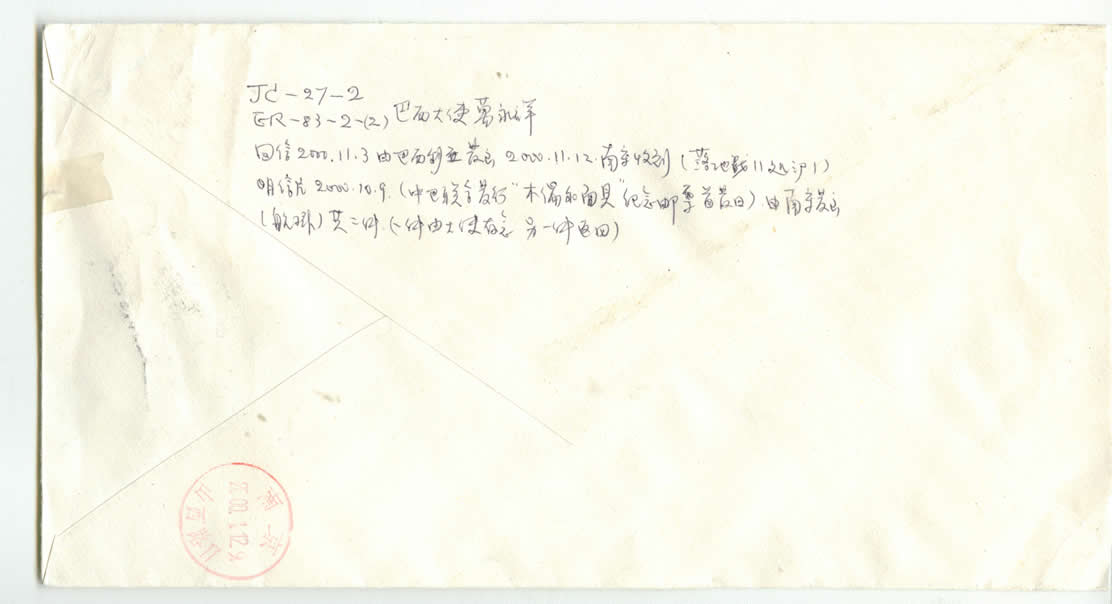 JC-27-2
ER-83-2-(2) 巴西大使萬永祥
回信2000.11.3 由巴西利亚发出 2000.11.12.南京收到 (落地戳11
明信片 2000.10.9. (中巴联合发行"木偶和面具"纪念邮票首发日) 由南京发出
(航邓) 共二件.(一件由大使存念 另一件返回)
南京